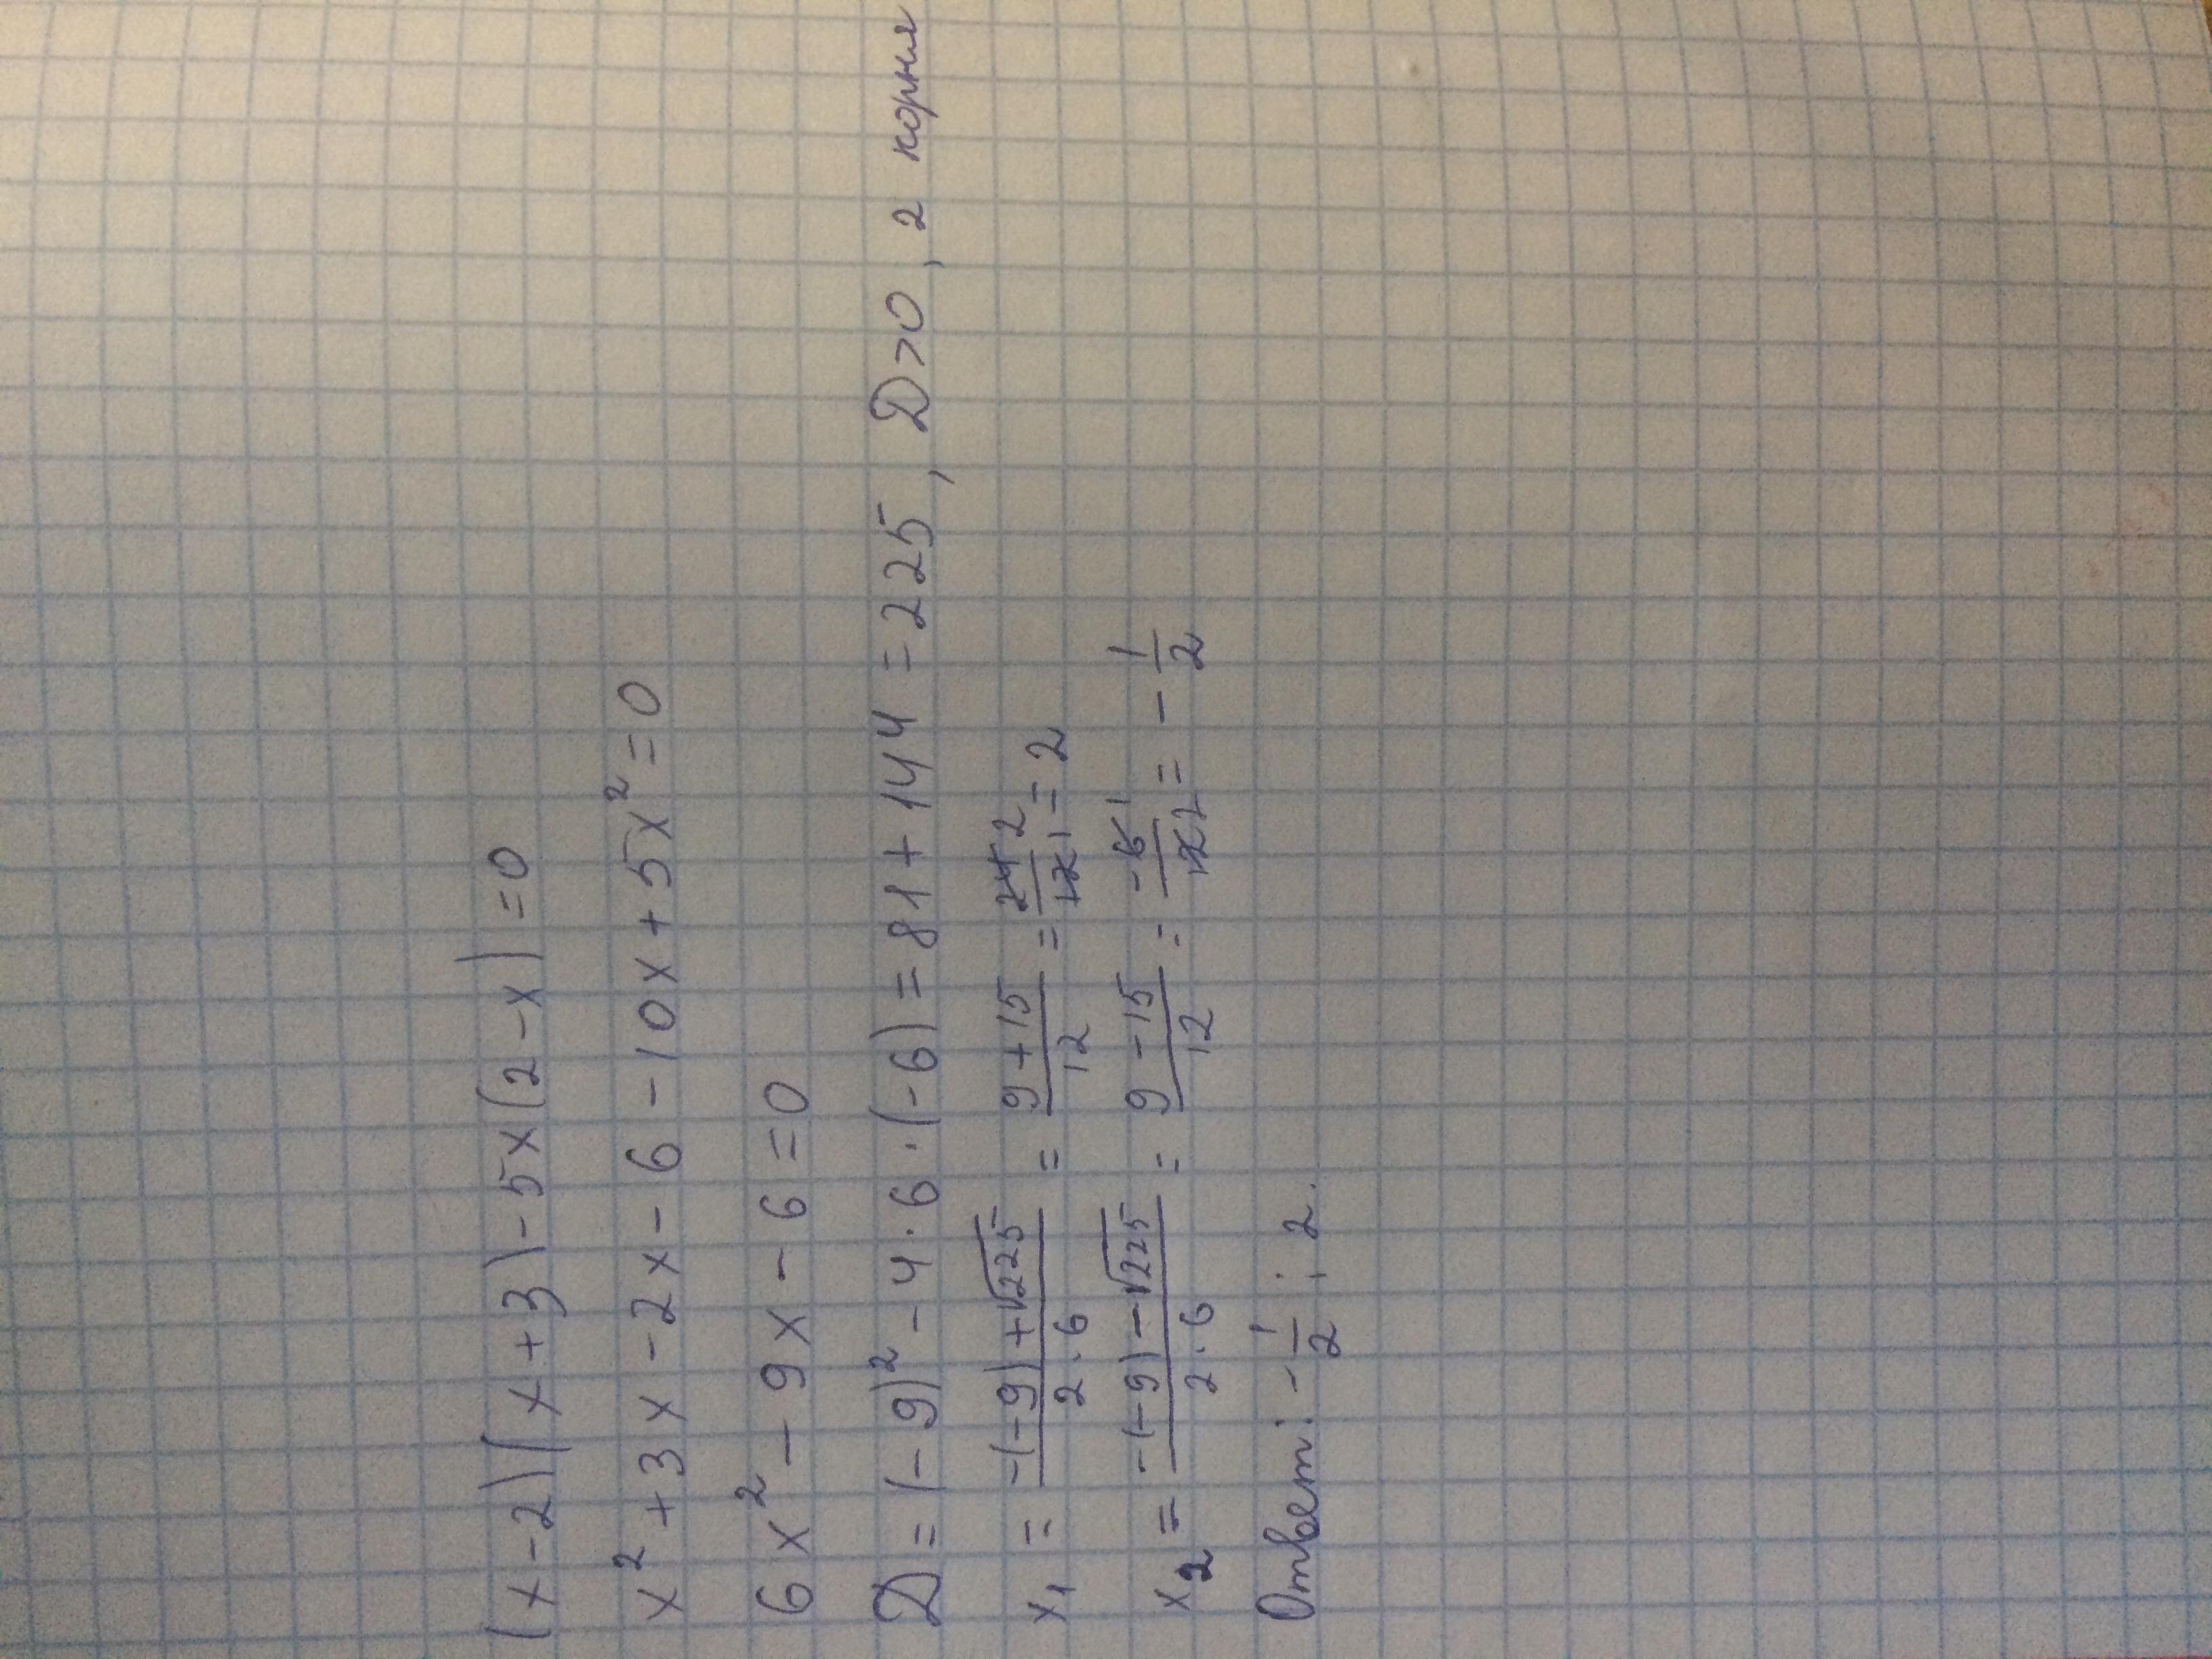 (x-2)(x+3)-5x(2-x)=0
x²+3x-2x-6-10x+5x²=0
6x²-9x-6=0
D=(-9)²-4·6·(-6)=81+144=225, D>0, 2 корня
x₁ = (-(-9)+√225)/(2·6) = (9+15)/12 = 24 2/12 1 = 2
x₂ = (-(-9)-√225)/(2·6) = (9-15)/12 = -6 1/12 2 = -1/2
Ответ: -1/2; 2.